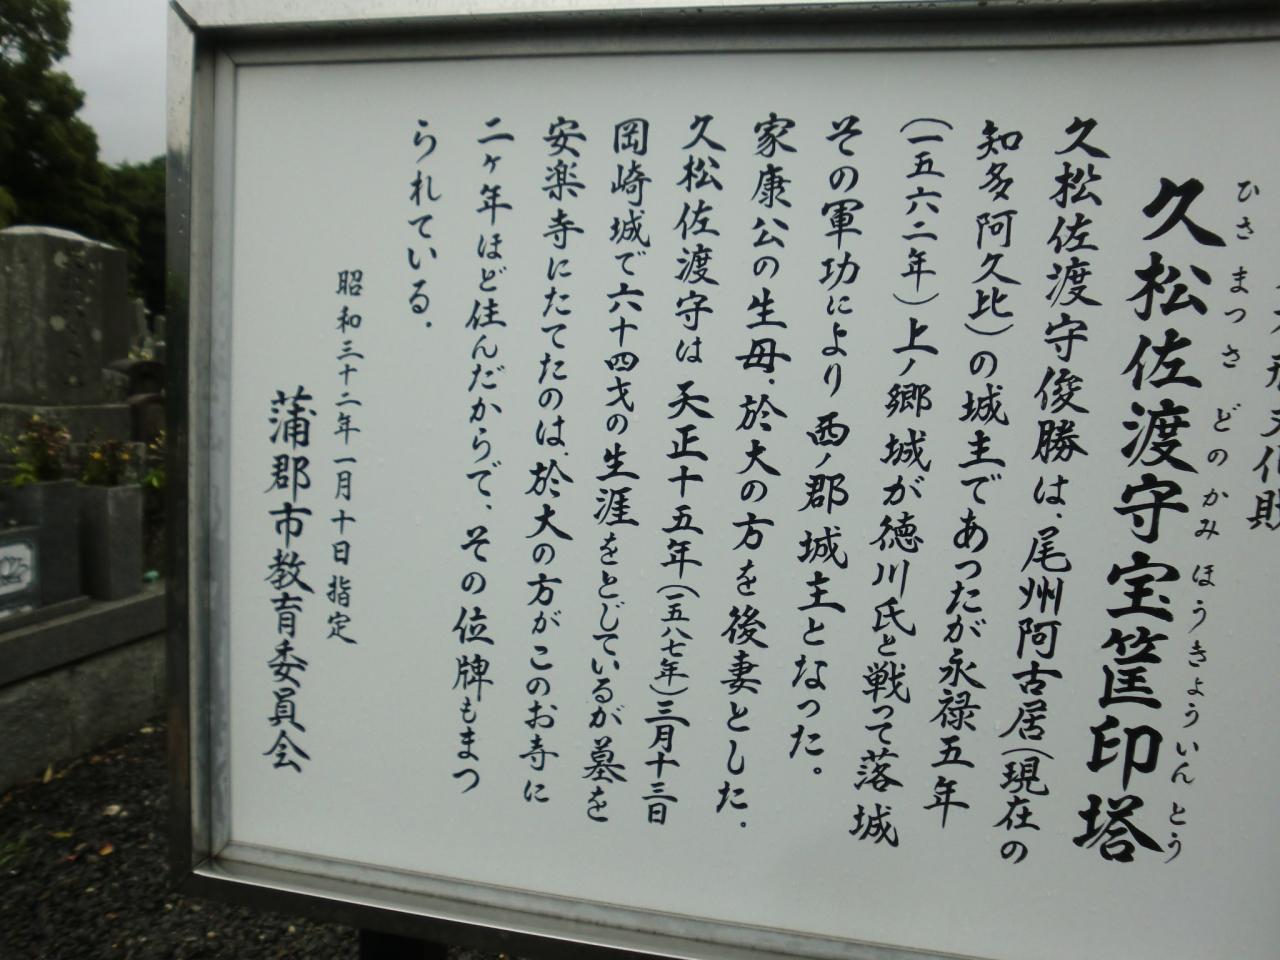 久松佐渡守宝筐印塔
ひさまつさどのかみほうきょういんとう
久松佐渡守俊勝は、尾州阿古居(現在の
知多阿久比)の城主であったが永禄五年
(一五六二年)上ノ郷城が徳川氏と戦って落城
その軍功により西ノ郡城主となった。
家康公の生母、於大の方を後妻とした。
久松佐渡守は天正十五年(一五八七年)三月十三日
岡崎城で六十四才の生涯をとじているが墓を
安楽寺にたてたのは、於大の方がこのお寺に
二ヶ年ほど住んだからで、その位牌もまつ
られている。
昭和三十二年一月十日指定
蒲郡市教育委員会